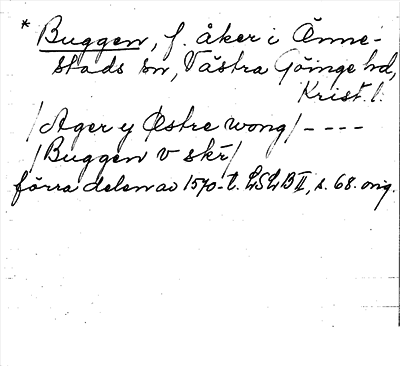 * Buggen, f. åker i Önne-
stads sn, Västra Göinge hd,
Krist. l.
/Ager y Østre wong/ ----
/Buggen v skr/
förra delen av 1570-t. LSLB II, s. 68. orig.